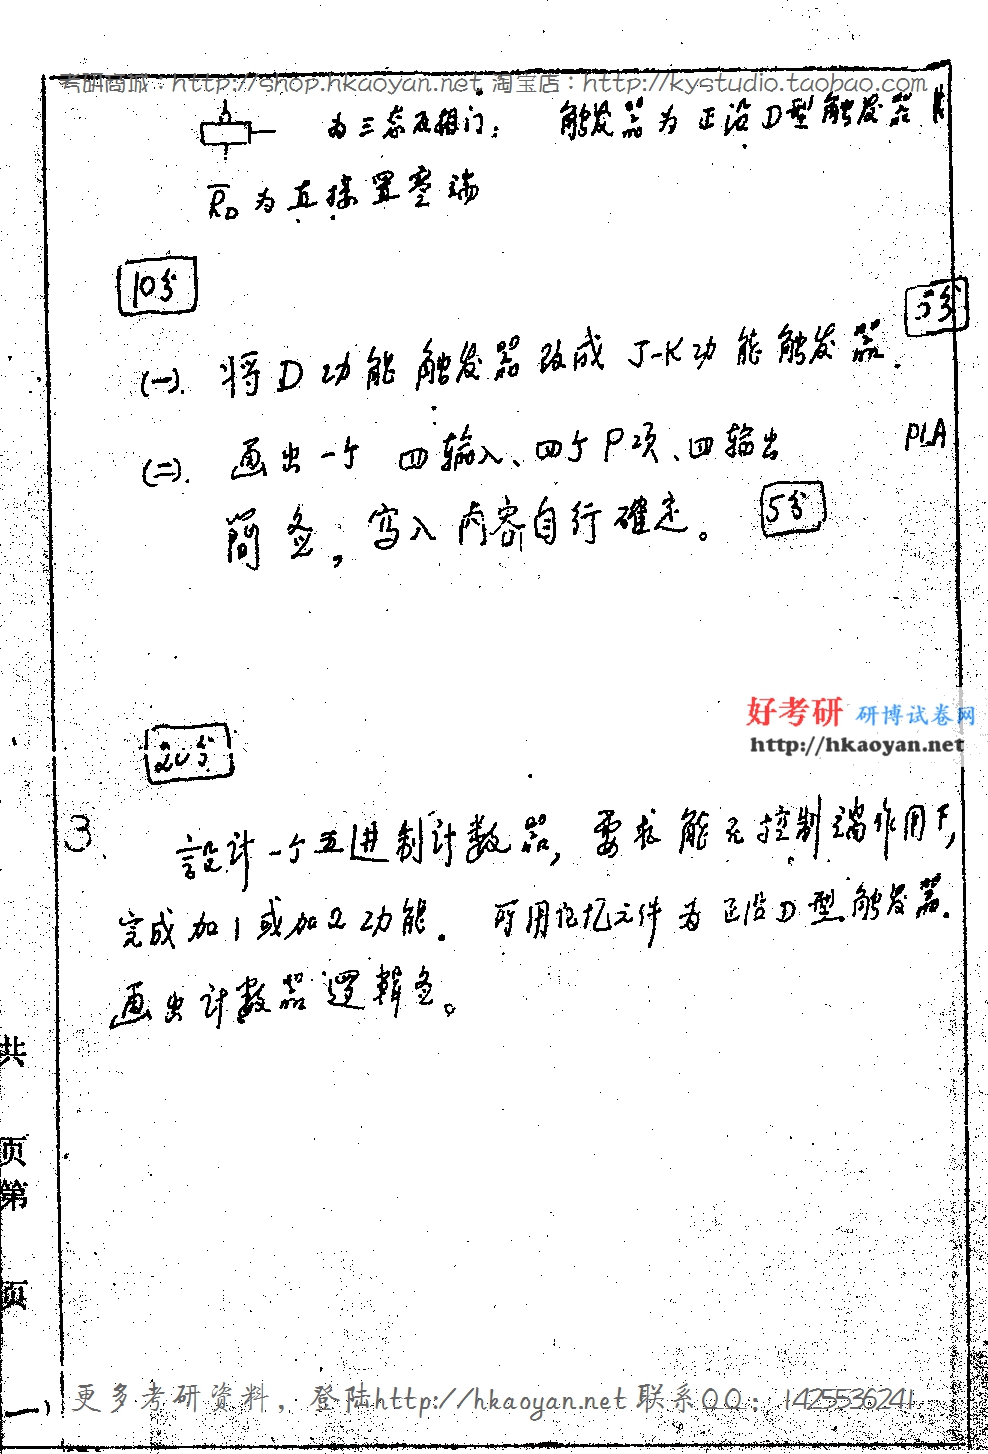 考研商城：http://shop.hkaoyan.net 淘宝店：http://kystudio.taobao.com
为三态反相门； 触发器为正沿D型触发器
R̅D 为直接置零端
10分
5分
(一). 将D功能触发器改成J-K功能触发器.
(二). 画出一个 四输入、四个P项、四输出 PLA
简图，写入内容自行确定。 5分
好考研 研博试卷网
http://hkaoyan.net
20分
3. 設计一个五进制计数器，要求能在控制端作用下，
完成加1或加2功能. 所用记忆元件为正沿D型触发器.
画出计数器逻辑图。
共
页
第
页
更多考研资料，登陆http://hkaoyan.net 联系QQ：1425536241